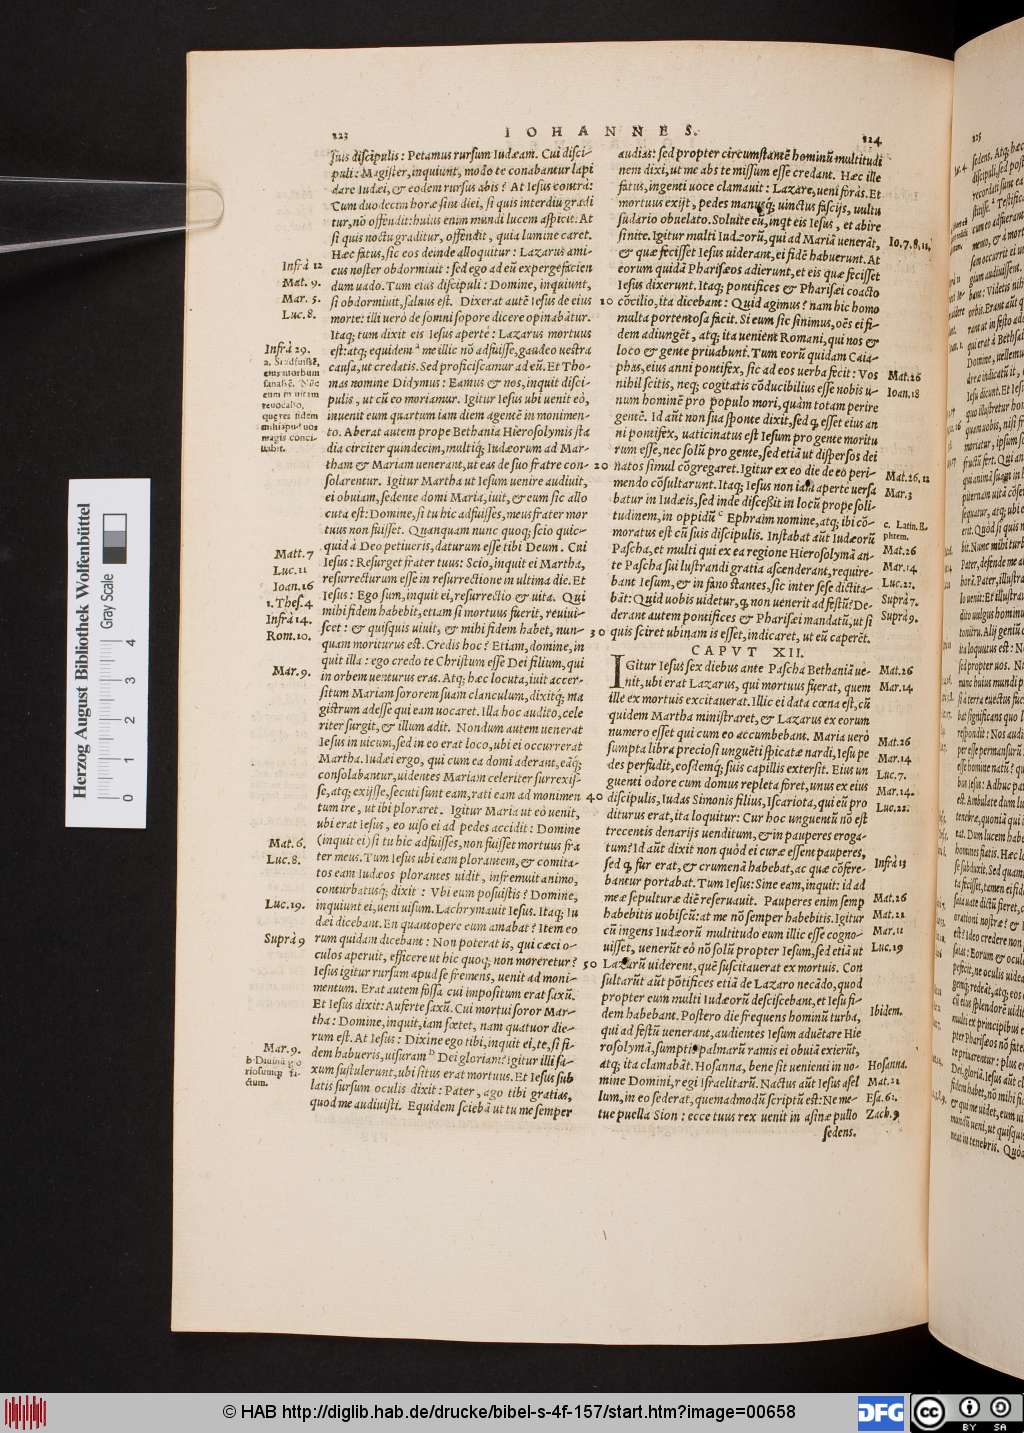 223
IOHANNES.
224
ſuis diſcipulis: Petamus rurſum Iudæam. Cui diſci-
puli: Magiſter, inquiunt, modo te conabantur lapi
dare Iudæi, & eodem rurſus abis? At Ieſus contrà:
Cum duodecim horæ ſint diei, ſi quis interdiu gradi
tur, nō offendit: huius enim mundi lucem aſpicit: At
ſi quis noctu graditur, offendit, quia lumine caret.
Hæc fatus, ſic eos deinde alloquitur: Lazarus ami-
cus noſter obdormiuit: ſed ego ad eũ expergefacien
dum uado. Tum eius diſcipuli: Domine, inquiunt,
ſi obdormiuit, ſaluus eſt. Dixerat autē Ieſus de eius
morte: illi uerò de ſomni ſopore dicere opinabātur.
Itaq; tum dixit eis Ieſus apertè: Lazarus mortuus
eſt: atq; equidem a me illic nō adfuiſſe, gaudeo ueſtra
cauſa, ut credatis. Sed proficiſcamur ad eũ. Et Tho-
mas nomine Didymus: Eamus & nos, inquit diſci-
pulis, ut cũ eo moriamur. Igitur Ieſus ubi uenit eò,
inuenit eum quartum iam diem agentē in monimen-
to. Aberat autem prope Bethania Hieroſolymis ſta
dia circiter quindecim, multiq; Iudæorum ad Mar-
tham & Mariam uenerant, ut eas de ſuo fratre con-
ſolarentur. Igitur Martha ut Ieſum uenire audiuit,
ei obuiam, ſedente domi Maria, iuit, & eum ſic allo
cuta eſt: Domine, ſi tu hic adfuiſſes, meus frater mor
tuus non fuiſſet. Quanquam nunc quoq; ſcio quic-
quid à Deo petiueris, daturum eſſe tibi Deum. Cui
Ieſus: Reſurget frater tuus: Scio, inquit ei Martha,
reſurrecturum eſſe in reſurrectione in ultima die. Et
Ieſus: Ego ſum, inquit ei, reſurrectio & uita. Qui
mihi fidem habebit, etiam ſi mortuus fuerit, reuiui-
ſcet: & quiſquis uiuit, & mihi fidem habet, nun-
quam moriturus eſt. Credis hoc? Etiam, domine, in
quit illa: ego credo te Chriſtum eſſe Dei filium, qui
in orbem uenturus eras. Atq; hæc locuta, iuit accer-
ſitum Mariam ſororem ſuam clanculum, dixitq; ma
giſtrum adeſſe qui eam uocaret. Illa hoc audito, cele
riter ſurgit, & illum adit. Nondum autem uenerat
Ieſus in uicum, ſed in eo erat loco, ubi ei occurrerat
Martha. Iudæi ergo, qui cum ea domi aderant, eāq;
conſolabantur, uidentes Mariam celeriter ſurrexiſ-
ſe, atq; exijſſe, ſecuti ſunt eam, rati eam ad monimen
tum ire, ut ibi ploraret. Igitur Maria ut eò uenit,
ubi erat Ieſus, eo uiſo ei ad pedes accidit: Domine
(inquit ei) ſi tu hic adfuiſſes, non fuiſſet mortuus fra
ter meus. Tum Ieſus ubi eam plorantem, & comita-
tos eam Iudæos plorantes uidit, infremuit animo,
conturbatusq; dixit: Vbi eum poſuiſtis? Domine,
inquiunt ei, ueni uiſum. Lachrymauit Ieſus. Itaq; Iu
dæi dicebant. En quantopere eum amabat? Item eo
rum quidam dicebant: Non poterat is, qui cæci o-
culos aperuit, efficere ut hic quoq; non moreretur?
Ieſus igitur rurſum apud ſe fremens, uenit ad moni-
mentum. Erat autem foſſa cui impoſitum erat ſaxũ.
Et Ieſus dixit: Auferte ſaxũ. Cui mortui ſoror Mar-
tha: Domine, inquit, iam fœtet, nam quatuor die-
rum eſt. At Ieſus: Dixi ne ego tibi, inquit ei, te, ſi fi-
dem habueris, uiſuram b Dei gloriam? Igitur illi ſa-
xum ſuſtulerunt, ubi ſitus erat mortuus. Et Ieſus ſub
latis ſurſum oculis dixit: Pater, ago tibi gratias,
quod me audiuiſti. Equidem ſciebā ut tu me ſemper
Infrà 12
Mat. 9.
Mar. 5.
Luc. 8.
Infrà 29.
magis conci-
Matt. 7
Luc. 11
Ioan. 16
1. Theſ. 4
Infrà 14.
Rom. 10.
Mar. 9.
Mat. 6.
Luc. 8.
Luc. 19.
Suprà 9
Mar. 9.
ctum.
10
20
30
40
50
audias: ſed propter circumſtantē hominũ multitudi
nem dixi, ut me abs te miſſum eſſe credant. Hæc ille
fatus, ingenti uoce clamauit: Lazare, ueni foràs. Et
mortuus exijt, pedes manuſq; uinctus faſcijs, uultu
ſudario obuelato. Soluite eũ, inqt eis Ieſus, et abire
ſinite. Igitur multi Iudæorũ, qui ad Mariā uenerāt,
& quæ feciſſet Ieſus uiderant, ei fidē habuerunt. At
eorum quidā Phariſæos adierunt, et eis quæ feciſſet
Ieſus dixerunt. Itaq; pontifices & Phariſæi coacto
cōcilio, ita dicebant: Quid agimus? nam hic homo
multa portentoſa facit. Si eum ſic ſinimus, oēs ei fi-
dem adiungēt, atq; ita uenient Romani, qui nos &
loco & gente priuabunt. Tum eorũ quidam Caia-
phas, eius anni pontifex, ſic ad eos uerba fecit: Vos
nihil ſcitis, neq; cogitatis cōducibilius eſſe nobis u-
num hominē pro populo mori, quàm totam perire
gentē. Id aũt non ſua ſponte dixit, ſed q, eſſet eius an
ni pontifex, uaticinatus eſt Ieſum pro gente moritu
rum eſſe, nec ſolũ pro gente, ſed etiā ut diſperſos dei
natos ſimul cōgregaret. Igitur ex eo die de eo peri-
mendo cōſultarunt. Itaq; Ieſus non iam apertè uerſa
batur in Iudæis, ſed inde diſceßit in locũ prope ſoli-
tudinem, in oppidũ c Ephraim nomine, atq; ibi cō-
moratus eſt cũ ſuis diſcipulis. Inſtabat aũt Iudæorũ
Paſcha, et multi qui ex ea regione Hieroſolymā an-
te Paſcha ſui luſtrandi gratia aſcenderant, require-
bant Ieſum, & in fano ſtantes, ſic inter ſeſe dictita-
bāt: Quid uobis uidetur, q, non uenerit ad feſtũ? De-
derant autem pontifices & Phariſæi mandatũ, ut ſi
quis ſciret ubinam is eſſet, indicaret, ut eũ caperēt.
CAPVT XII.
IGitur Ieſus ſex diebus ante Paſcha Bethaniā ue-
nit, ubi erat Lazarus, qui mortuus fuerat, quem
ille ex mortuis excitauerat. Illic ei data cœna eſt, cũ
quidem Martha miniſtraret, & Lazarus ex eorum
numero eſſet qui cum eo accumbebant. Maria uerò
ſumpta libra precioſi unguēti ſpicatæ nardi, Ieſu pe
des perfudit, eoſdemq; ſuis capillis exterſit. Eius un
guenti odore cum domus repleta foret, unus ex eius
diſcipulis, Iudas Simonis filius, Iſcariota, qui eũ pro
diturus erat, ita loquitur: Cur hoc unguentũ nō eſt
trecentis denarijs uenditum, & in pauperes eroga-
tum? Id aũt dixit non quòd ei curæ eſſent pauperes,
ſed q, fur erat, & crumenā habebat, ac quæ cōfere-
bantur portabat. Tum Ieſus: Sine eam, inquit: id ad
meæ ſepulturæ diē reſeruauit. Pauperes enim ſemp
habebitis uobiſcũ: at me nō ſemper habebitis. Igitur
cũ ingens Iudæorũ multitudo eum illic eſſe cogno-
uiſſet, uenerũt eò nō ſolũ propter Ieſum, ſed etiā ut
Lazarũ uiderent, quē ſuſcitauerat ex mortuis. Con
ſultarũt aũt pōtifices etiā de Lazaro necādo, quod
propter eum multi Iudæorũ deſciſcebant, et Ieſu fi-
dem habebant. Poſtero die frequens hominũ turba,
qui ad feſtũ uenerant, audientes Ieſum aduētare Hie
roſolymā, ſumptis palmarũ ramis ei obuiā exierũt,
atq; ita clamabāt. Hoſanna, bene ſit uenienti in no-
mine Domini, regi Iſraelitarũ. Nactus aũt Ieſus aſel
lum, in eo ſederat, quemadmodũ ſcriptũ eſt: Ne me-
tue puella Sion: ecce tuus rex uenit in aſinæ pullo
ſedens.
Io. 7. 8. 11.
Mat. 26
Ioan. 18
Mat. 26. 12
Mar. 3
c. Latin. E-
phrem.
Mat. 26
Mar. 14.
Luc. 22.
Suprà 7.
Suprà 9.
Mat. 26
Mar. 14
Mat. 26
Mar. 14
Luc. 7.
Mar. 14.
Luc. 22.
Infrà 13
Mat. 26
Mat. 21
Mar. 11
Luc. 19
Ibidem.
Hoſanna.
Mat. 21
Eſa. 62.
Zach. 9
225
Herzog August Bibliothek Wolfenbüttel
Gray Scale
0 1 2 3 4
© HAB http://diglib.hab.de/drucke/bibel-s-4f-157/start.htm?image=00658
DFG
cc
BY SA